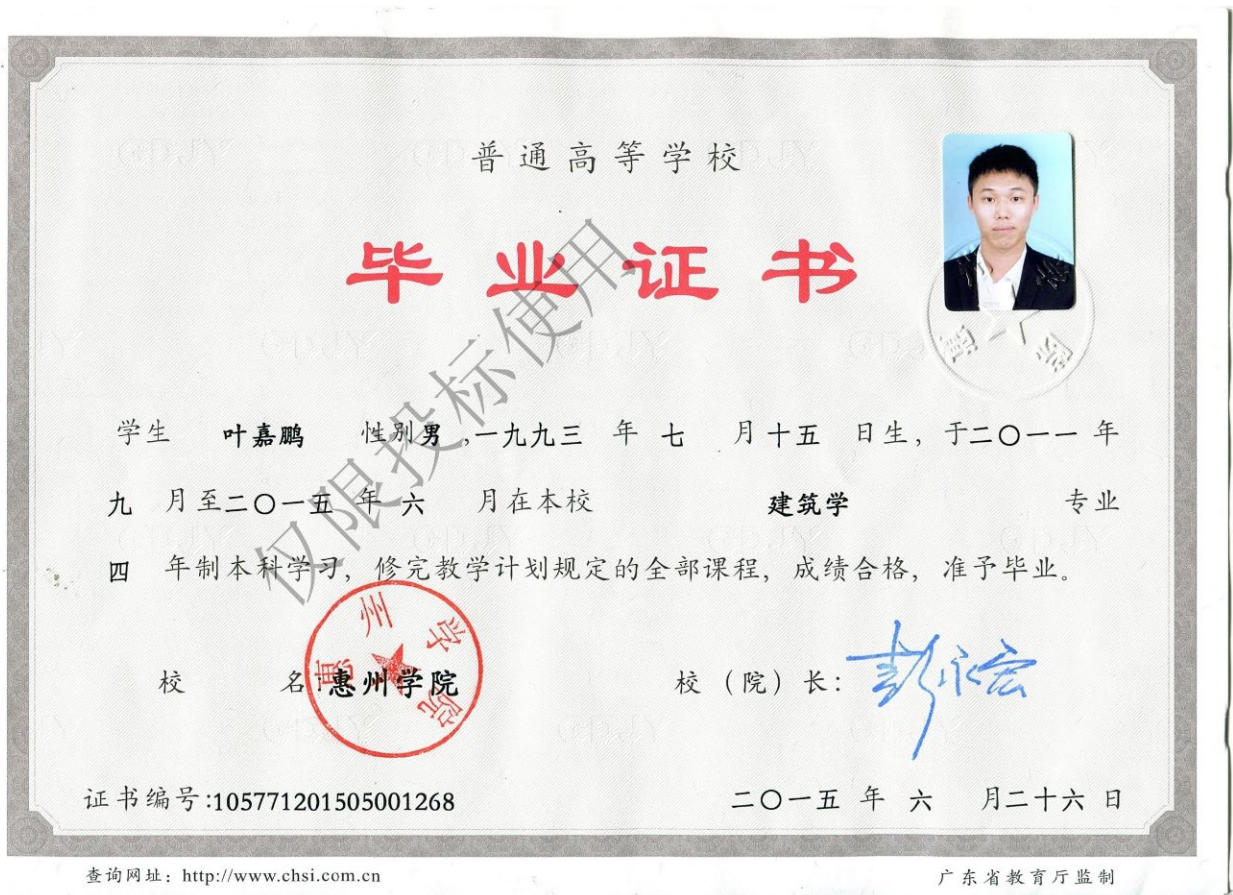 普通高等学校
毕业证书
学生 叶嘉鹏 性别男,一九九三 年 七 月十五 日生，于二〇一一 年
九 月至二〇一五 年 六 月在本校 建筑学 专业
四 年制本科学习，修完教学计划规定的全部课程，成绩合格，准予毕业。
校 名:惠州学院
校（院）长：彭永宏
惠州学院
证书编号:105771201505001268
二〇一五 年 六 月二十六 日
查询网址：http://www.chsi.com.cn
广东省教育厅监制
仅限投标使用